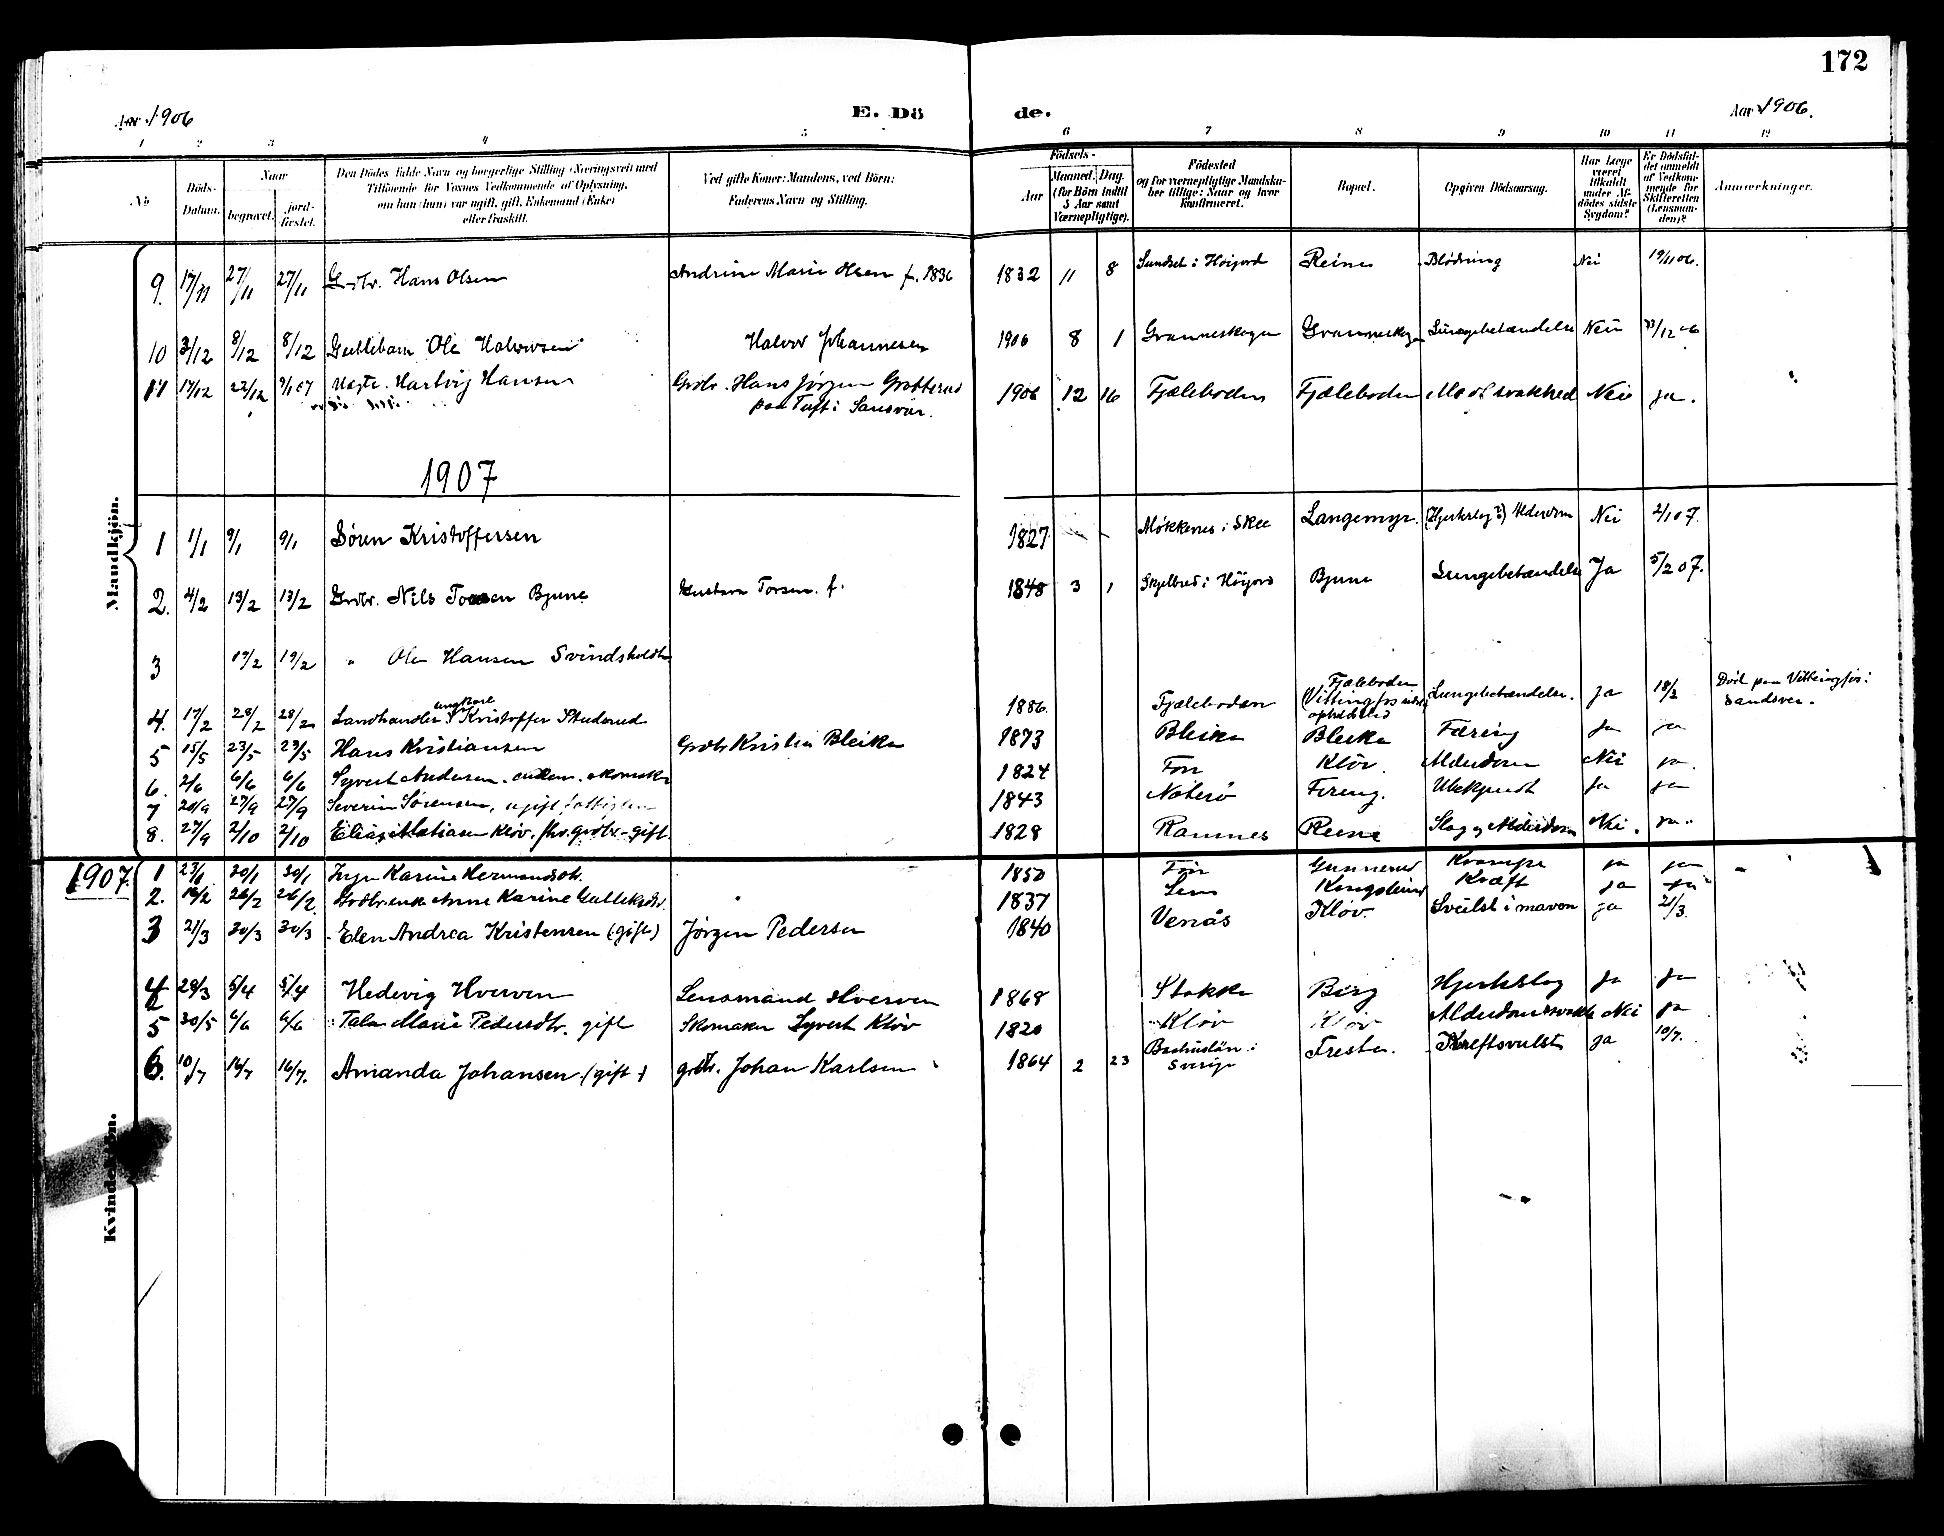 172
Aar 1906
E. Dö
de.
Aar 1906.
1 2 3 4 5 6 7 8 9 10 11 12
No
Döds-Datum.
Naar
begravet.
jord-fæstet.
Den Dödes fulde Navn og borgerlige Stilling (Næringsvei) med
Tilföiende for Voxnes Vedkommende af Oplysning,
om han (hun) var ugift, gift, Enkemand (Enke)
eller fraskilt.
Ved gifte Koner: Mandens, ved Börn:
Faderens Navn og Stilling.
Födsels-
Aar
Maaned. Dag.
(for Börn indtil
5 Aar samt
Værnepligtige).
Födested
og for værnepligtige Mandska-
ber tillige: Naar og hvor
konfirmeret.
Bopæl.
Opgiven Dödsaarsag.
Har Læge
været
tilkaldt
under Af-
dödes sidste
Sygdom?
Er Dödsfal-
det anmeldt
af Vedkom-
mende for
Skifteretten
(Lensman-
den)?
Anmærkninger.
Mandkjön.
9. 17/11 27/11 27/11 Grdbr. Hans Olsen Andrine Marie Olsen f. 1836 1832 11 8 Sundset i Höijord Reine Blödning Nei 19/11 06.
10 3/12 8/12 8/12 Guttebarn Ole Halvorsen Halvor Johannesen 1906 8 1 Granneskogen Granneskogen Lungebetændelse Nei /12 06
11 17/12 22/12 9/1 07 Uægte. Hartvig Hansen Grdbr. Hans Jörgen Grotterud 1906 12 16 Fjæleboden Fjæleboden Medf svakhed Nei ja.
paa Tuft i Sansvær.
1907
1 1/1 9/1 9/1 Sören Kristoffersen 1827 Mökkenes i Skee Langemyr. (Hjerteslag?) Alderdom Nei 2/1 07.
2. 4/2 13/2 13/2 Grdbr. Nils Torsen Bjune Gustava Torsen. f. 1848 3 1 Skjelbred i Höijord Bjune Lungebetændelse Ja 5/2 07.
3 19/2 19/2 " Ole Hansen Svindsholdt
4. 17/2 28/2 28/2 Landhandler ungkarl Kristoffer Studsrud 1886 Fjæleboden Fjæleboden (Vittingfos opholdssted Lungebetændelse. ja 18/2 Död paa Vittingfos i
Sandsver.
5 15/5 23/5 23/5 Hans Kristiansen Grdbr Kristian Bleika 1873 Bleika Bleika Tæring ja ja
6. 2/6 6/6 6/6 Syvert Andersen. enkem. skomaker 1824 Fon Klöv. Alderdom Nei ja.
7 20/9 27/9 27/9 Severin Sörensen, ugift fattiglem 1843 Nöterö Foreng. Ubekjendt ja ja
8. 27/9 2/10 2/10 Elias Matiasen Klöv. fhv. grdbr. - gift. 1828 Ramnes Reine Slag og Alderdom Nei. ja.
1907.
Kvindekjön.
1 23/1 30/1 30/1 Inger Karine Hermandsdtr. 1850 Fon Gunnerud Krampe ja ja
2. 19/2 26/2 26/2 Grdbr.enke Anne Karine Gulliksdtr. 1837 Lem Kongsteinrud Kræft ja ja
3 21/3 30/3 30/3 Elen Andrea Kristensen (gift) Jörgen Pedersen 1840 Venås Klöv. Svulst i maven ja 21/3.
4 29/3 5/4 5/4 Hedevig Hverven Lensmand Hverven 1868 Stokke Berg Hjerteslag ja ja
5 30/5 6/6 6/6 Talea Marie Pedersdtr. gift Skomaker Syvert Klöv 1820 Klöv Klöv Alderdomssvakh Nei ja
6. 10/7 16/7 16/7. Amanda Johansen (gift) grdbr. Johan Karlsen 1864 2 23 Baahuslän i Freste. Kreftsvulst ja 10/7.
Sverige